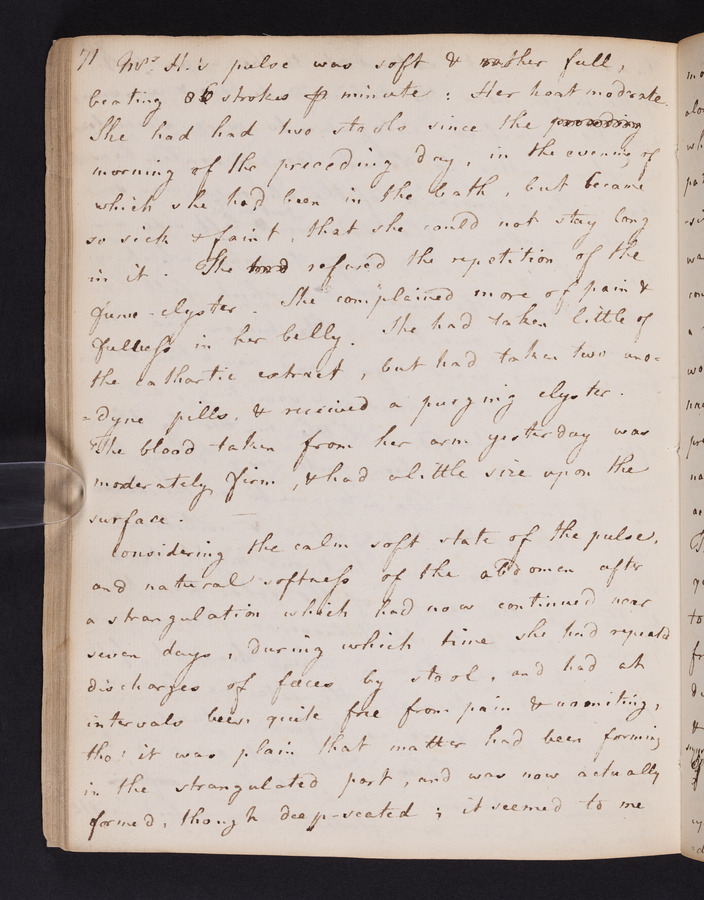 71 Mrs H.'s pulse was soft & rather full,
beating 86 strokes ⅌ minute : Her heat moderate.
She had had two stools since the preceding
morning of the preceding day, in the evening of
which she had been in the bath, but became
so sick & faint, that she could not stay long
in it. She had refused the repetition of the
fume-clyster. She complained more of pain &
fullness in her belly. She had taken little of
the cathartic extract, but had taken two ano=
=dyne pills, & received a purging clyster.
The blood taken from her arm yesterday was
moderately firm, & had a little size upon the
surface.
Considering the calm soft state of the pulse,
and natural softness of the abdomen after
a strangulation which had now continued near
seven days, during which time she had repeated
discharges of fæces by stool, and had at
intervals been quite free from pain & vomiting,
tho' it was plain that matter had been forming
in the strangulated part, and was now actually
formed, though deep-seated ; it seemed to me